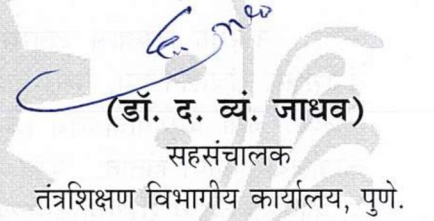 (डॉ. द. व्यं. जाधव)
सहसंचालक
तंत्रशिक्षण विभागीय कार्यालय, पुणे.